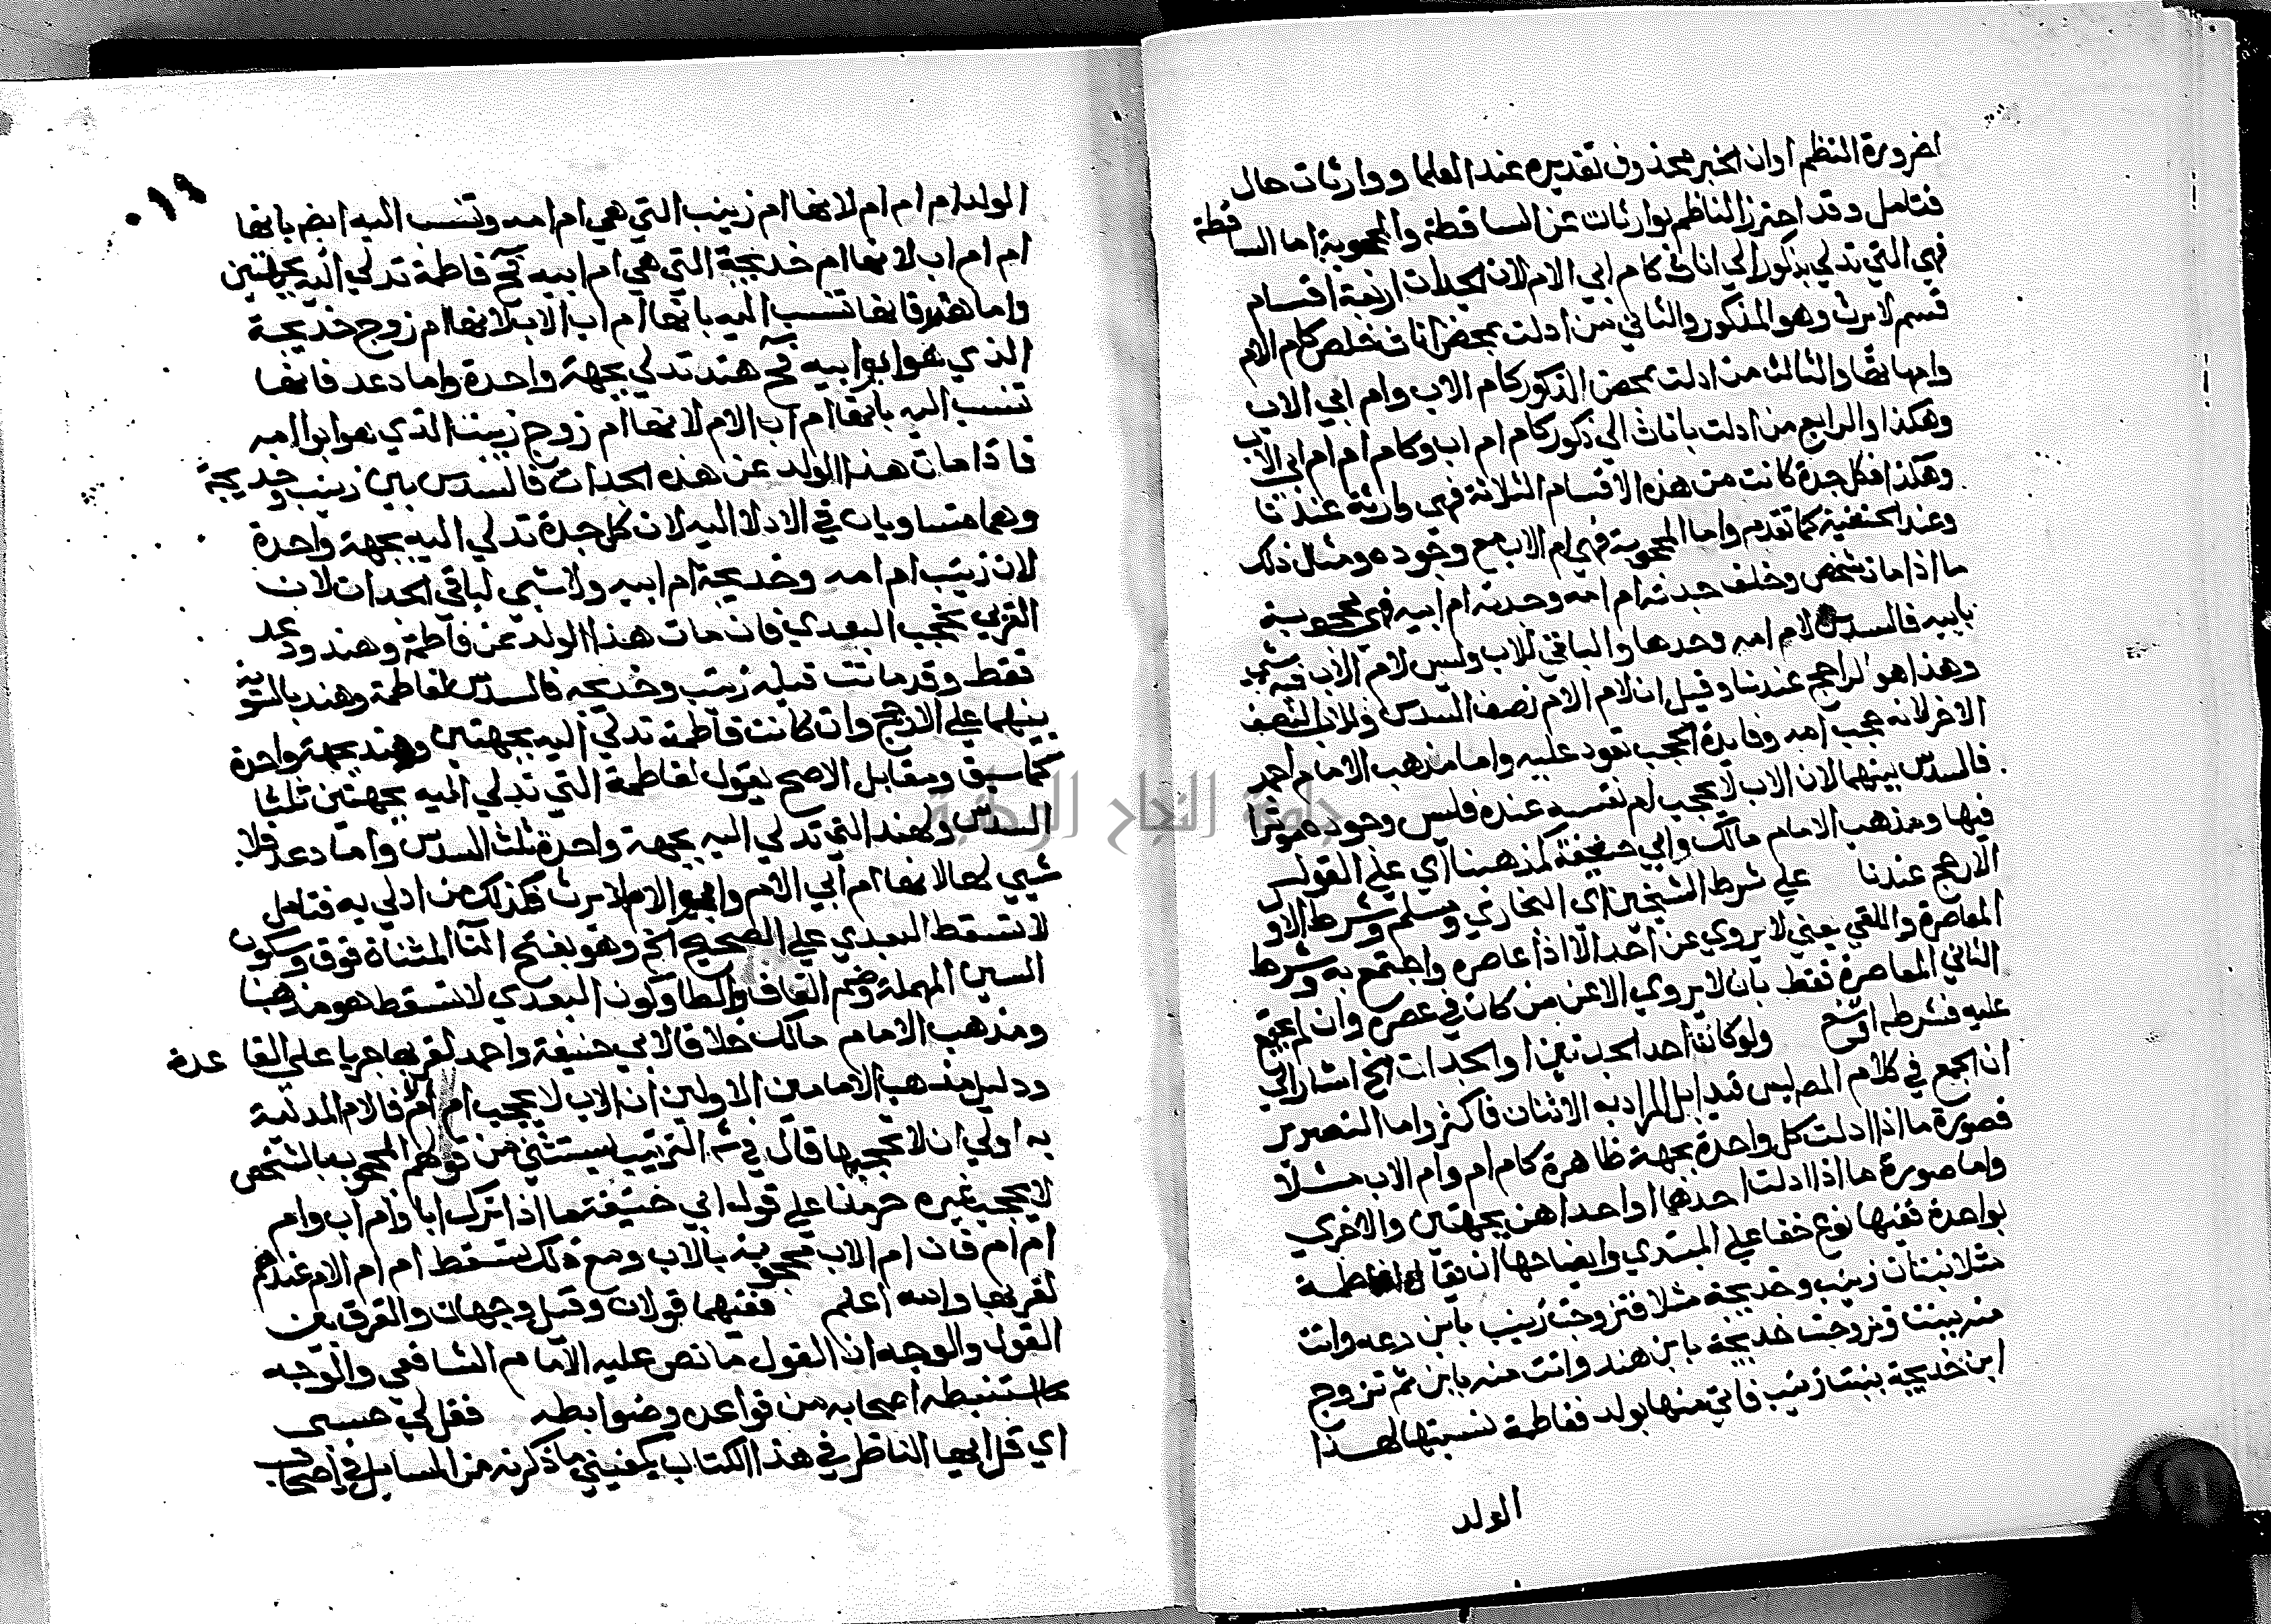 لضرورة النظم اوان الخبر محذوف تقديره عند العلما ووارثات حال
فتامل وقد احترز الناظم بوارثات عن الساقطة والمحجوبة اما الساقطة
فهي التي تدلي بذكور الي اناث كام ابي الام لان الجدات اربعة اقسام
قسم لا يرث وهو المذكور والثاني من ادلت بمحض اناث خلص كام الام
وامهاتها والثالث من ادلت بمحض الذكور كام الاب وام ابي الاب
وهكذا والرابع من ادلت باناث الي ذكور كام ام اب وكام ام ام ابي الاب
وهكذا فكل جدة كانت من هذه الاقسام الثلاثة فهي وارثة عندنا
وعند الحنفية كما تقدم واما المحجوبة فهي ام الاب مع وجوده ومثال ذلك
ما اذا مات شخص وخلف جدته ام امه وجدته ام ابيه فهي محجوبة
بابيه فالسدس لام امه وحدها والباقي للاب وليس لام الاب فيه شي
وهذا هو الراجح عندنا وقيل ان لام الام نصف السدس وللاب النصف
الاخر لانه حجب امه وفايدة الحجب تعود عليه واما مذهب الامام احمد
فالسدس بينهما لان الاب لا يحجب ام نفسه عنده فليس وجوده موثرا
فيها ومذهب الامام مالك وابي حنيفة كمذهبنا اي علي القول
الارجح عندنا علي شرط الشيخين اي البخاري ومسلم وشرط الاو
المعاصرة واللقي يعني لا يروي عن احد الا اذا عاصره واجتمع به وشرط
الثاني المعاصرة فقط بان لا يروي الا عن من كان في عصره وان لم يجتمع
عليه فشرطه اوسع ولو كانت احد الجدتين او الجدات الخ اشار الي
ان الجمع في كلام المص ليس قيدا بل المراد به الاثنان فاكثر واما التصوير
فصورة ما اذا ادلت كل واحدة بجهة ظاهرة كام ام وام الاب مثلا
واما صورة ما اذا ادلت احدها او احداهن بجهتين والاخري
بواحدة ففيها نوع خفا علي المبتدي وايضاحها ان يقال لفاطمة
مثلا بنتان زينب وخديجة مثلا فتزوجت زينب بابن دعد واتت
منه ببنت وتزوجت خديجة بابن هند واتت منه بابن ثم تزوج
ابن خديجة بنت زينب فاتي منها بولد ففاطمة نسبتها لهذا
الولد
٩٩
الولد ام ام ام لانها ام زينب التي هي ام امه وتنسب اليه ايض بانها
ام ام اب لانها ام خديجة التي هي ام ابيه فح فاطمة تدلي اليه بجهتين
واما هند فانها تنسب اليه بانها ام اب الاب لانها ام زوج خديجة
الذي هو ابو ابيه فح هند تدلي بجهة واحدة واما دعد فانها
تنسب اليه بانها ام اب الام لانها ام زوج زينب الذي هو ابو امه
فاذا مات هذا الولد عن هذه الجدات فالسدس بين زينب وخديجة
وهما متساويان في الادلا اليه لان كل جدة تدلي اليه بجهة واحدة
لان زينب ام امه وخديجة ام ابيه ولا شي لباقي الجدات لان
القربي تحجب البعدي فان مات هذا الولد عن فاطمة وهند ودعد
فقط وقد ماتت قبله زينب وخديجه فالسدس لفاطمة وهند بالسوية
بينهما علي الارجح وان كانت فاطمة تدلي اليه بجهتين وهند بجهة واحدة
كما سبق ومقابل الاصح يقول لفاطمة التي تدلي اليه بجهتين ثلثا
السدس ولهند التي تدلي اليه بجهة واحدة ثلث السدس واما دعد فلا
شيي لها لانها ام ابي الام وابو الام لا يرث فكذلك من ادلي به فتامل
لا تسقط البعدي علي الصحيح الخ وهو بفتح التا المثناة فوق وسكون
السين المهملة وضم القاف والطا وكون البعدي لا تسقط هو مذهبنا
ومذهب الامام مالك خلافا لابي حنيفة واحمد لقربها جريا علي القاعدة
ودليل مذهب الامامين الاولين ان الاب لا يحجب ام الام فالام المدلية
به اولي ان لا تحجبها قال في شر الترتيب يستثني من قولهم المحجوب بالشخص
لا يحجب غيره حرمانا علي قول ابي حنيفة ما اذا ترك ابا وام اب وام
ام ام فان ام الاب محجوبة بالاب ومع ذلك تسقط ام ام الام عندهم
لقربها والله اعلم ففيهما قولان وقيل وجهان والفرق بين
القول والوجه ان القول ما نص عليه الامام الشافعي والوجه
ما استنبطه اصحابه من قواعده وضوابطه فقل لي حسبي
اي قل ايها الناظر في هذا الكتاب يكفيني ما ذكرته من المسايل في اصحاب
جامعة النجاح الوطنية